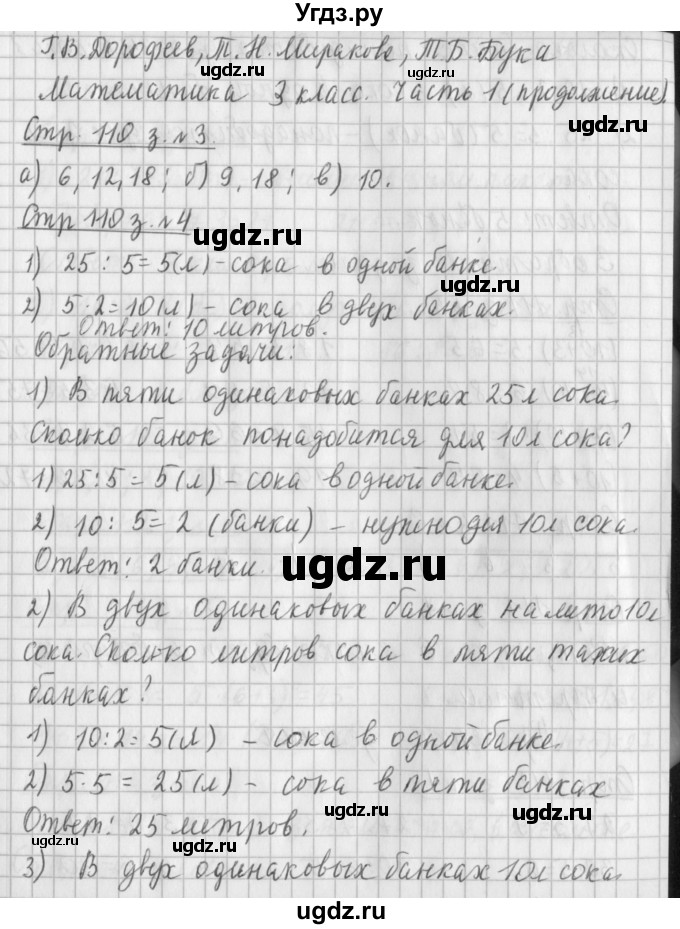 Угдз.ру
Г.В. Дорофеев, Т.Н. Миракова, Т.Б. Бука
ugdz.ru
Математика 3 класс. Часть 1 (продолжение).
Стр. 110 з. №3.
ugdz.ru
а) 6, 12, 18; б) 9, 18; в) 10.
Стр 110 з. №4
ugdz.ru
1) 25 : 5 = 5(л) - сока в одной банке
ugdz.ru
2) 5·2=10(л) - сока в двух банках.
Ответ: 10 литров.
Обратные задачи:
ugdz.ru
1) В пяти одинаковых банках 25л сока.
Сколько банок понадобится для 10л сока?
ugdz.ru
1) 25:5 = 5(л) - сока в одной банке.
2) 10 : 5 = 2 (банки) - нужно для 10л сока.
ugdz.ru
Ответ: 2 банки.
2) В двух одинаковых банках налито 10л
ugdz.ru
сока. Сколько литров сока в пяти таких
банках?
1) 10:2=5(л) - сока в одной банке.
ugdz.ru
2) 5·5 = 25(л) - сока в пяти банках
ugdz.ru
Ответ: 25 литров.
ugdz.ru
3) В двух одинаковых банках 10л сока.
ugdz.ru
ugdz.ru